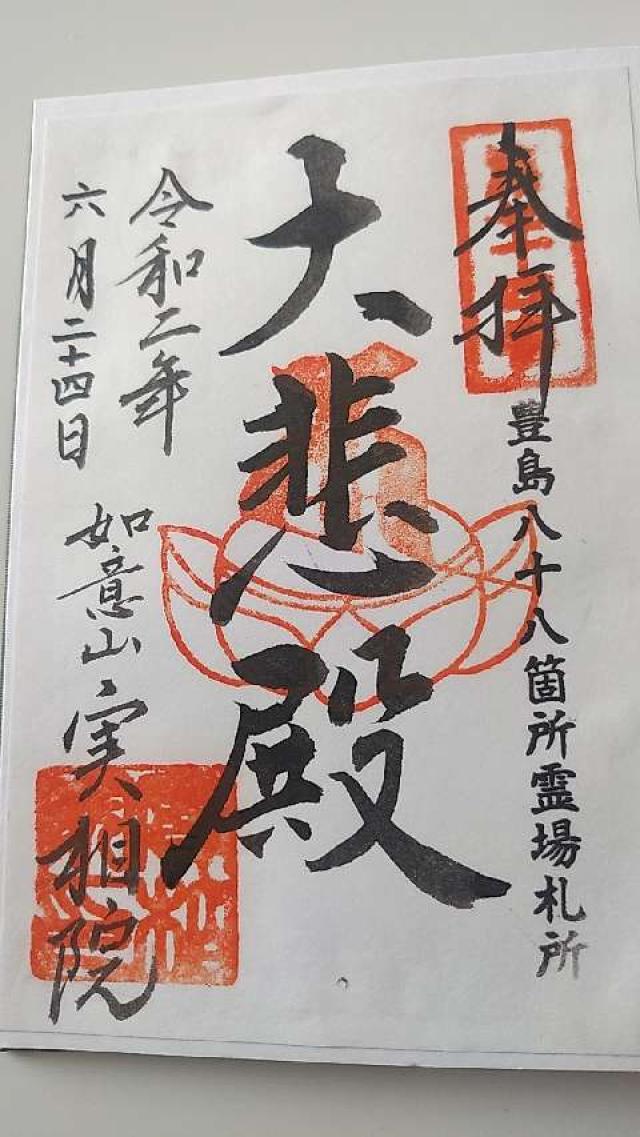 奉拝
豊島八十八箇所霊場札所
大悲殿
令和二年
六月二十四日
如意山実相院